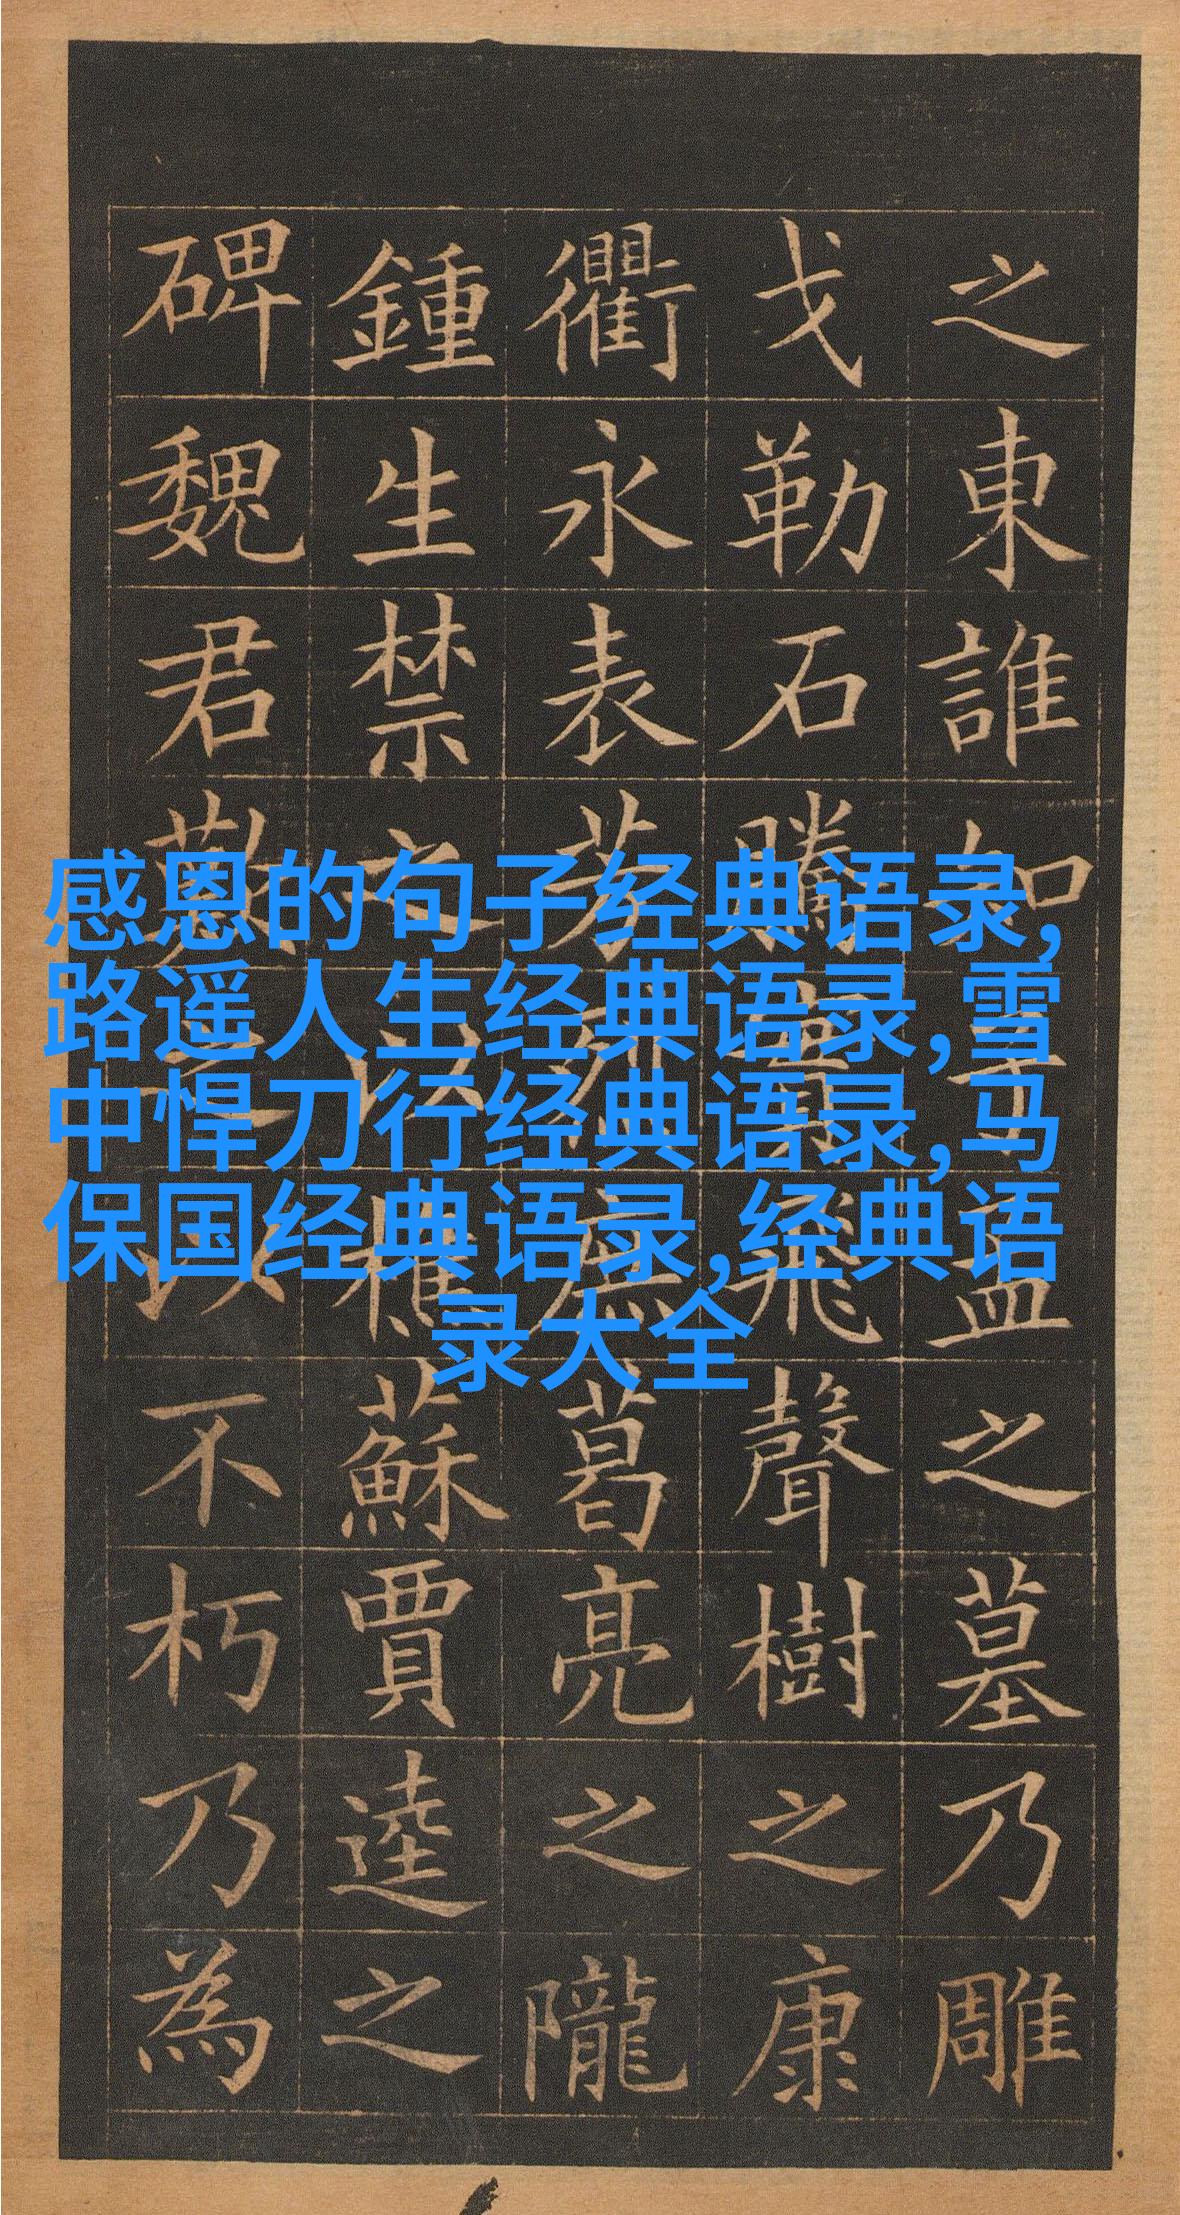 感恩的句子经典语录,
路遥人生经典语录,雪
中悍刀行经典语录,马
保国经典语录,经典语
录大全
之東誰知孟之墓乃雕
戈勒石騰飛聲樹之康
衢永表芳烈庶葛亮之隴
鍾生禁之以樵蘇賈逵之
碑魏君歎之以不朽乃為